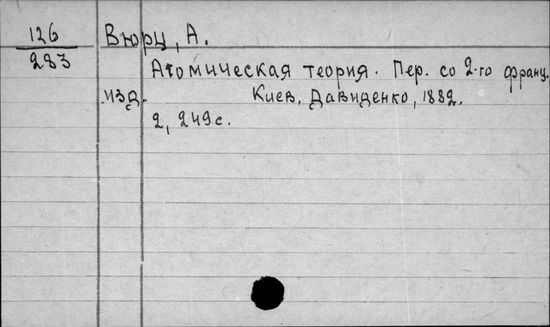 126
283
Вюрц, А.
Атомическая теория. Пер. со 2-го франц.
изд. Киев, Давиденко, 1882.
2, 249 с.